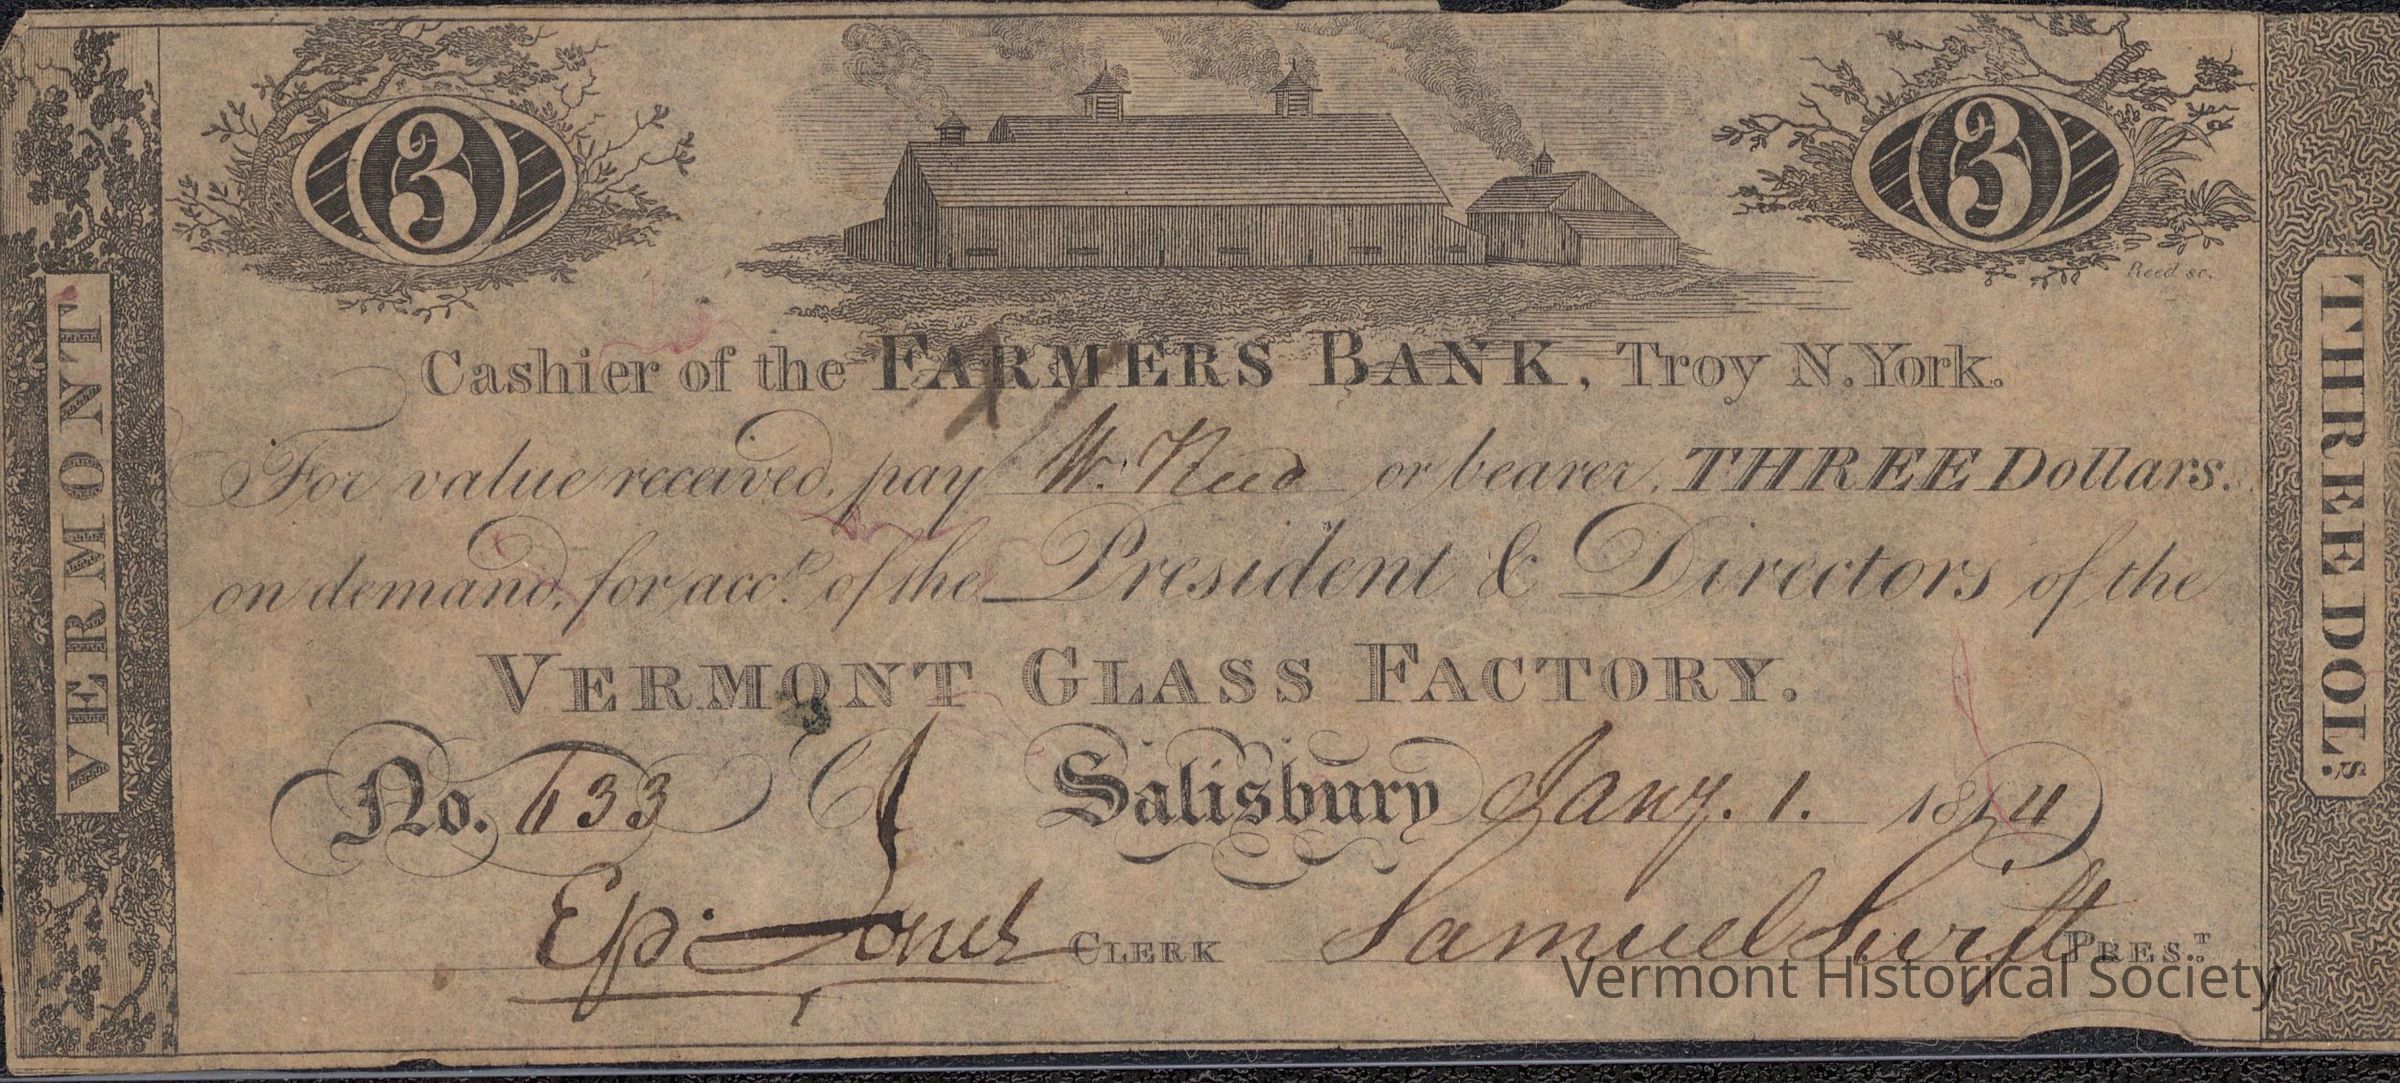 3
3
Reed sc.
VERMONT
THREE DOLS.
Cashier of the FARMERS BANK, Troy N. York.
For value received, pay W. Reed or bearer, THREE Dollars.
on demand, for acct. of the President & Directors of the
VERMONT GLASS FACTORY.
No. 633 Salisbury Jany. 1. 1814
Ep. Jones CLERK Samuel Swift PREST.
Vermont Historical Society